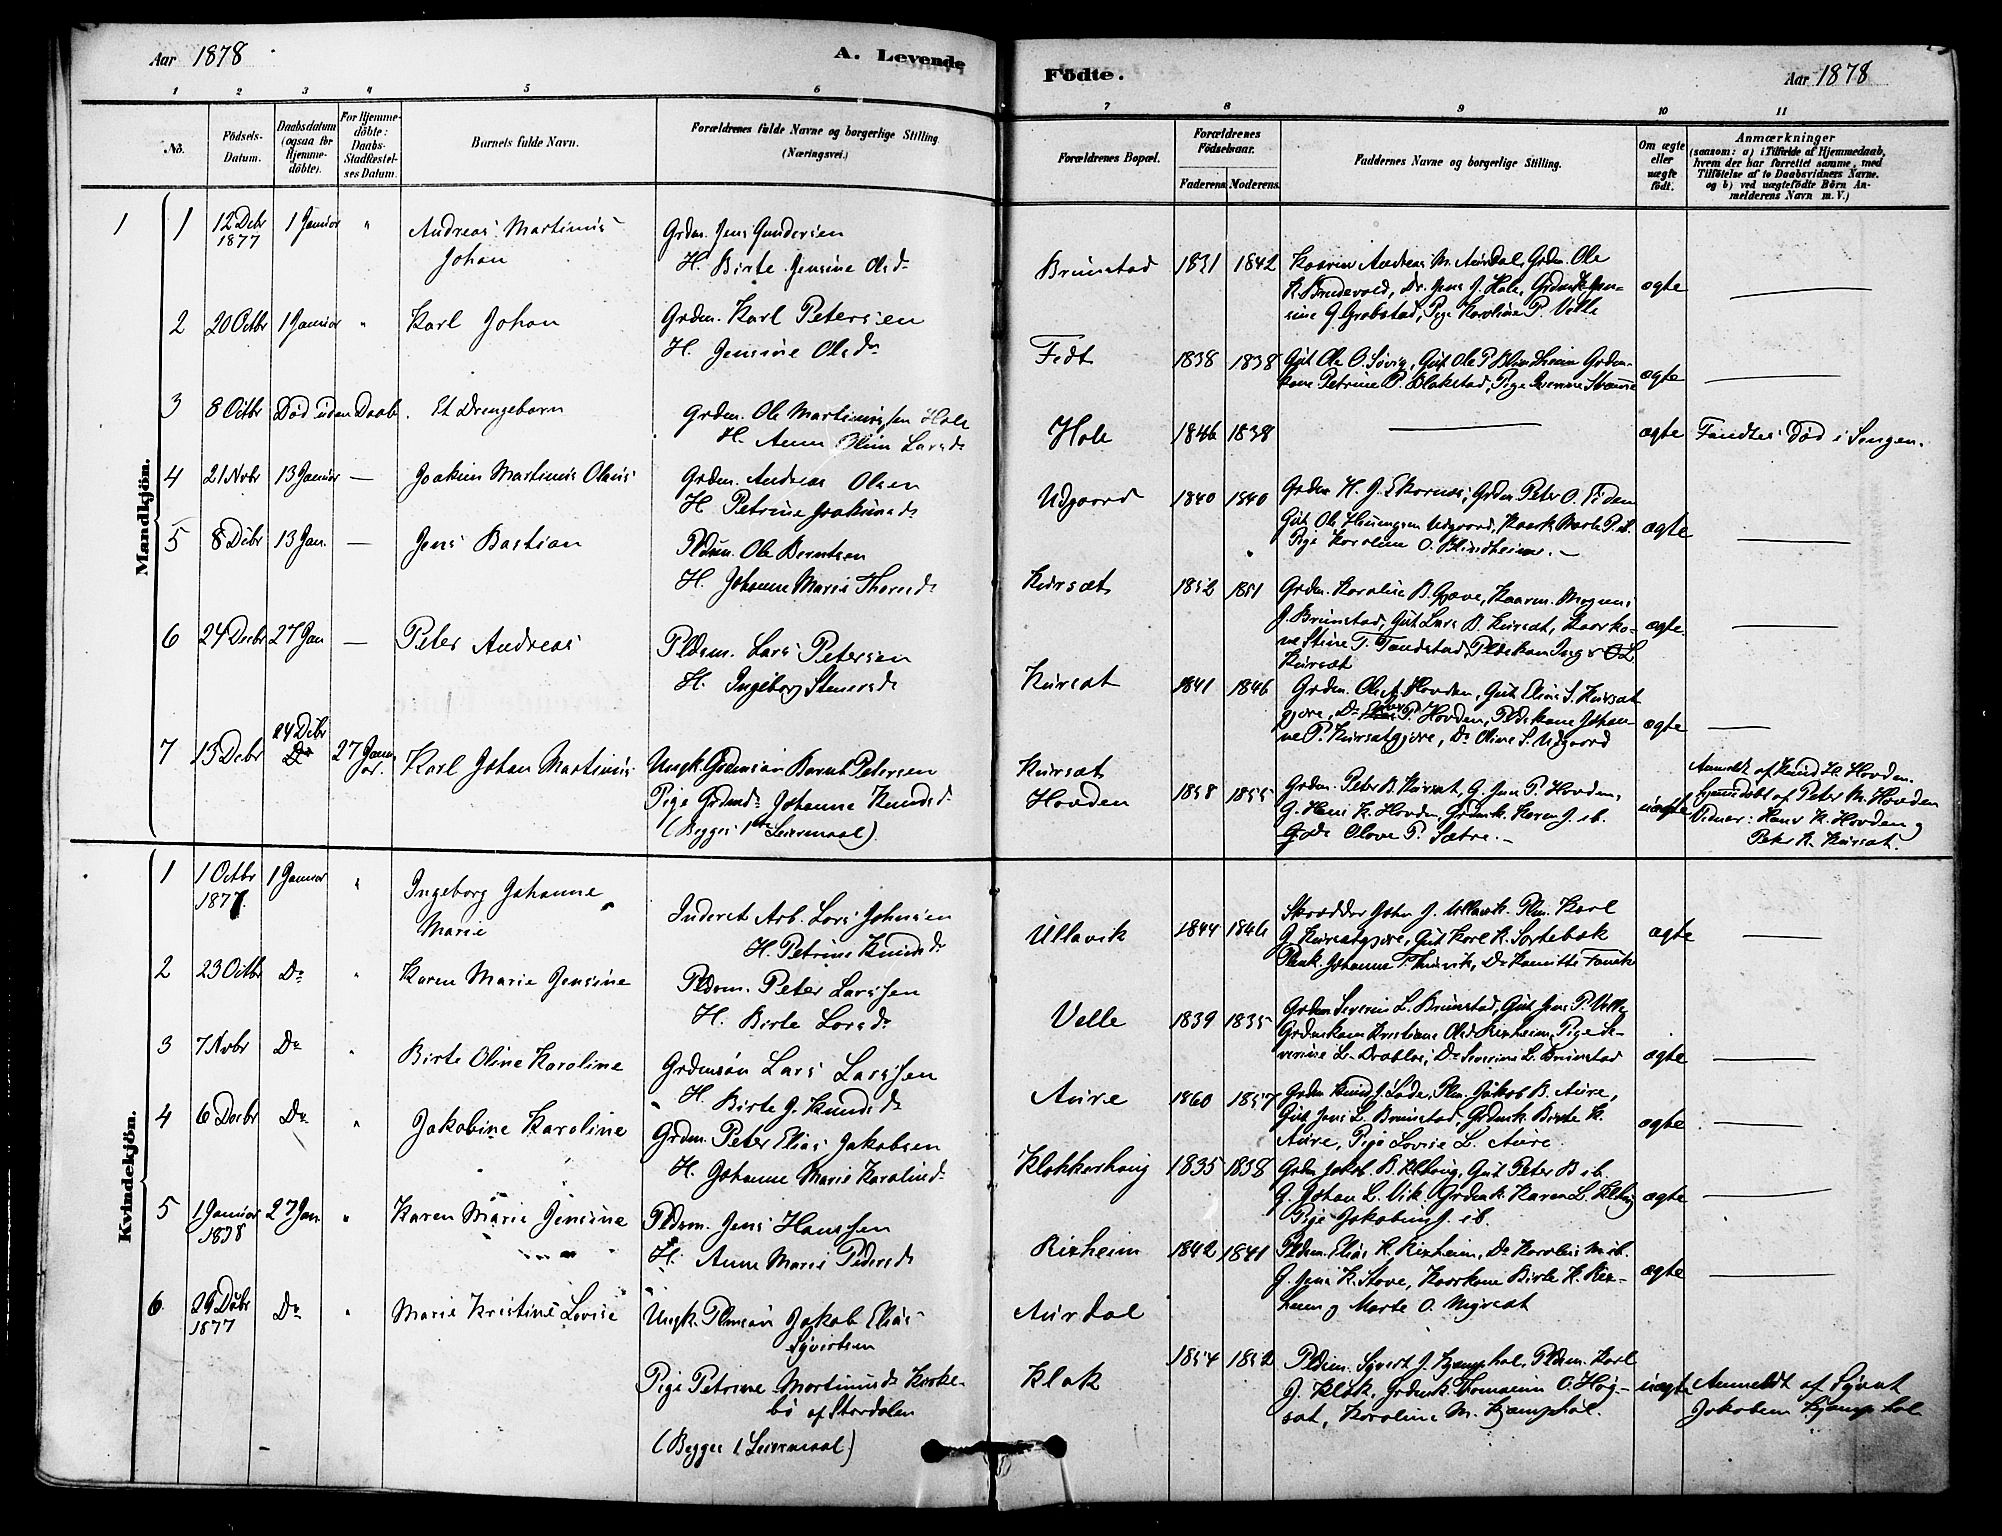 Aar 1878
A. Levende
Födte.
Aar 1878
1 2 3 4 5 6 7 8 9 10 11
No.
Födsels-
Datum.
Daabsdatum
(ogsaa for
Hjemme-
döbte).
For Hjemme-
döbte:
Daabs-
Stadfæstel-
ses Datum.
Barnets fulde Navn.
Forældrenes fulde Navne og borgerlige Stilling
(Næringsvei.)
Forældrenes Bopæl.
Forældrenes
Födselsaar.
Faderens. Moderens.
Faddernes Navne og borgerlige Stilling.
Om ægte
eller
uægte
födt.
Anmærkninger
(saasom: a) i Tilfælde af Hjemmedaab,
hvem der har forrettet samme, med
Tilföielse af to Daabsvidners Navne.
og b) ved uægtefödte Börn An-
melderens Navn m.V.)
Mandkjön.
1 1 12 Debr 1877 1 Januar " Andreas Martinus
Johan
Grdm. Jens Gundersen
H. Birte Jensine Olsdr
Brunstad 1831 1842 Kaarm Andreas M. Aurdal, Grdm. Ole
K. Brudevold, Dr. Jens J. Hole, Grdmk Jen-
sine G. Grebstad, Pige Karoline P. Velle
ægte
2 20 Octbr 1 Januar " Karl Johan
Grdm. Karl Petersen
H. Jensine Olsdr
Fedt 1838 1838 Gut Ole O. Søvig, Gut Ole P. Blindheim Grdm-
kone Petrine P. Blakstad, Pige
ægte
3 8 Octbr Död uden Daab. Et Drengebarn
Grdm. Ole Martinussen Hole
H. Anne Oline Larsdr
Hole 1846 1838 ægte Fandtes Död i Sengen.
4 21 Nvbr 13 Januar — Joakim Martinus Olaus
Grdm. Andreas Olsen
H. Petrine Joakimsdr
Udgaard 1840 1840 Grdm H. J. Ekornes, Grdm. Peter O. Tiden
Gut Ole Udgaard,
Pige Karoline O. Blindheim. —
ægte
5 8 Dcbr 13 Jan. — Jens Bastian
Pldsm. Ole Berntsen
H. Johanne Marie Thoresdr
Kursæt 1852 1851 Grdm. Karoline B. Gjøve, Kaarm. Mogens
J. Brunstad, Gut Lars B. Kursæt, Kaarko-
ne Stine T. Tandstad, Pldskone Inger O L
Kursæt
ægte.
6 24 Decbr 27 Jan — Peter Andreas
Pldsm. Lars Petersen
H. Ingeborg Stenersdr
Kursæt 1841 1846 Grdm. Ole A. Hovden, Gut Elias S. Kursæt
gjære, Dr P. Hovden, Pldskone Johan-
ne P. Kursætgjære, Dr Oline S. Udgaard
ægte
7 13 Debr 24 Debr 27 Janu-
ar.
Karl Johan Martinus
Ungk. Grdmsøn Bernt Petersen
Pige Grdmdr Johanne Knudsdr
(Begges 1ste Leiermaal).
Kursæt
Hovden
1858 1855 Grdm. Peter B. Kursæt, G. Jens P. Hovden,
G. Hans K. Hovden, Grdmk. Karen J. ib.
Olave P. Sætre. —
uægte
Anmeldt af Knud H. Hovden.
Hjemmedöbt af Peter M. Hovden
Vidner: Hans K. Hovden og
Peter K. Kursæt.
Kvindekjön.
1 1 Octbr 1877 1 Januar " Ingeborg Johanne
Marie
Inderst Arb. Lars Johnsen
H. Petrine Knudsdr
Ullavik 1844 1846 Skrædder John J. Ullavik. Plm. Karl
G. Kursætgjære, Gut Karl K. Sortebak
Plmk. Johanne T.
ægte
2 23 Octbr Dr " Karen Marie Jensine
Pldsm. Peter Larssen
H. Birte Larsdr
Velle 1839 1835 Grdm Severin L. Brunstad, Gut Jens P. Velle
Grdmkone Kristiane Olsd Rixheim, Pige Se-
verine L. Drabløs, Dr Severine L. Brunstad
ægte
3 7 Nvbr Dr " Birte Oline Karoline
Grdmsøn Lars Larssen
H. Birte J. Knudsdr
Aure 1860 1857 Grdm Knud J. Løde, Plm. Jakob B. Aure,
Gut Jens L. Brunstad, Grdmk. Birte K.
Aure, Pige Lovise L. Aure.
ægte
4 6 Decbr Dr " Jakobine Karoline
Grdm. Peter Elias Jakobsen
H. Johanne Marie Karolinedr
Klokkerhaug 1835 1838 Grdm Jakob B. Klhaug, Gut Peter B ib.
G. Johan L. Vik, Grdmk. Karen L. Klhg
Pige Jakobine J. ib.
ægte
5 1 Januar 1878 27 Jan. " Karen Marie Jensine
Pldsm. Jens Hanssen
H. Anne Marie Pedersdr
Rixheim 1842 1841 Pldsm. Elias K. Rixheim, Dr Karolus M ib.
G. Jens K. Stave, Kaarkone Birte K. Rix-
heim og Marte O. Nysæt
ægte
6 29 Debr 1877 Dr " Marie Kristine Lovise
Ungk. Plmsøn Jakob Elias
Syvertsen
Pige Petrine Martinusdr Kirke-
bö af Stordalen
(Begges 1 Leiermaal)
Aurdal
Klok
1854 1852 Pldsm. Syvert J. Kjæmphol, Pldsm. Karl
J. Klok, Grdmk. Thomasine O. Hög-
sæt, Karoline M. Kjæmphol.
uægte Anmeldt af Syvert
Jakobsen Kjæmphol